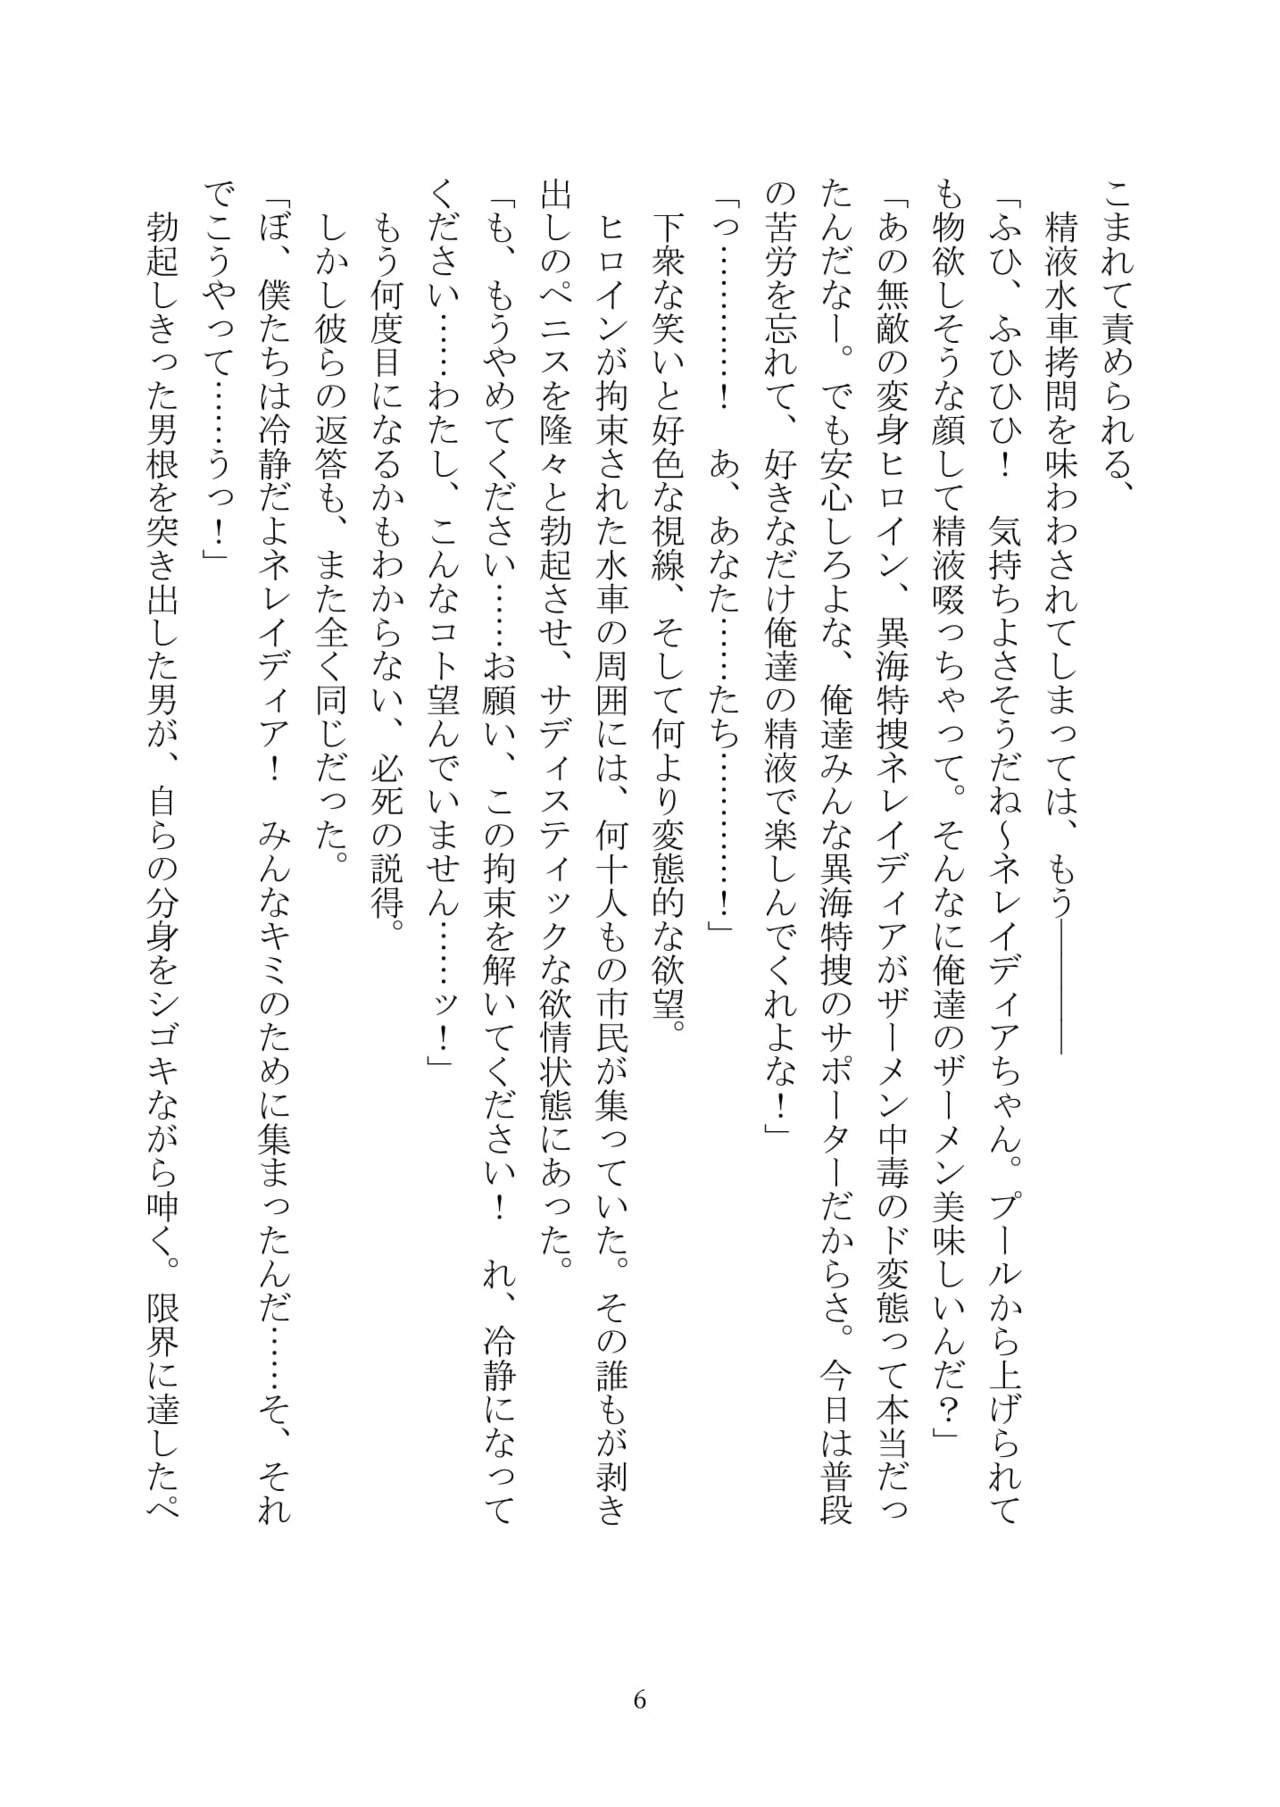 こまれて責められる、
　精液水車拷問を味わわされてしまっては、もう――――
「ふひ、ふひひひ！　気持ちよさそうだね～ネレイディアちゃん。プールから上げられて
も物欲しそうな顔して精液啜っちゃって。そんなに俺達のザーメン美味しいんだ？」
「あの無敵の変身ヒロイン、異海特捜ネレイディアがザーメン中毒のド変態って本当だっ
たんだなー。でも安心しろよな、俺達みんな異海特捜のサポーターだからさ。今日は普段
の苦労を忘れて、好きなだけ俺達の精液で楽しんでくれよな！」
「っ…………！　あ、あなた……たち…………！」
　下衆な笑いと好色な視線、そして何より変態的な欲望。
　ヒロインが拘束された水車の周囲には、何十人もの市民が集っていた。その誰もが剥き
出しのペニスを隆々と勃起させ、サディスティックな欲情状態にあった。
「も、もうやめてください……お願い、この拘束を解いてください！　れ、冷静になって
ください……わたし、こんなコト望んでいません……ッ！」
　もう何度目になるかもわからない、必死の説得。
　しかし彼らの返答も、また全く同じだった。
「ぼ、僕たちは冷静だよネレイディア！　みんなキミのために集まったんだ……そ、それ
でこうやって……うっ！」
　勃起しきった男根を突き出した男が、自らの分身をシゴキながら呻く。限界に達したペ
6